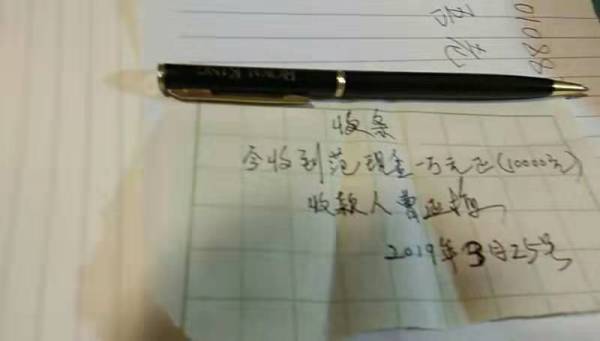 收条
今收到范现金一万元正(10000元)
收款人曹
2019年3月25号
01088